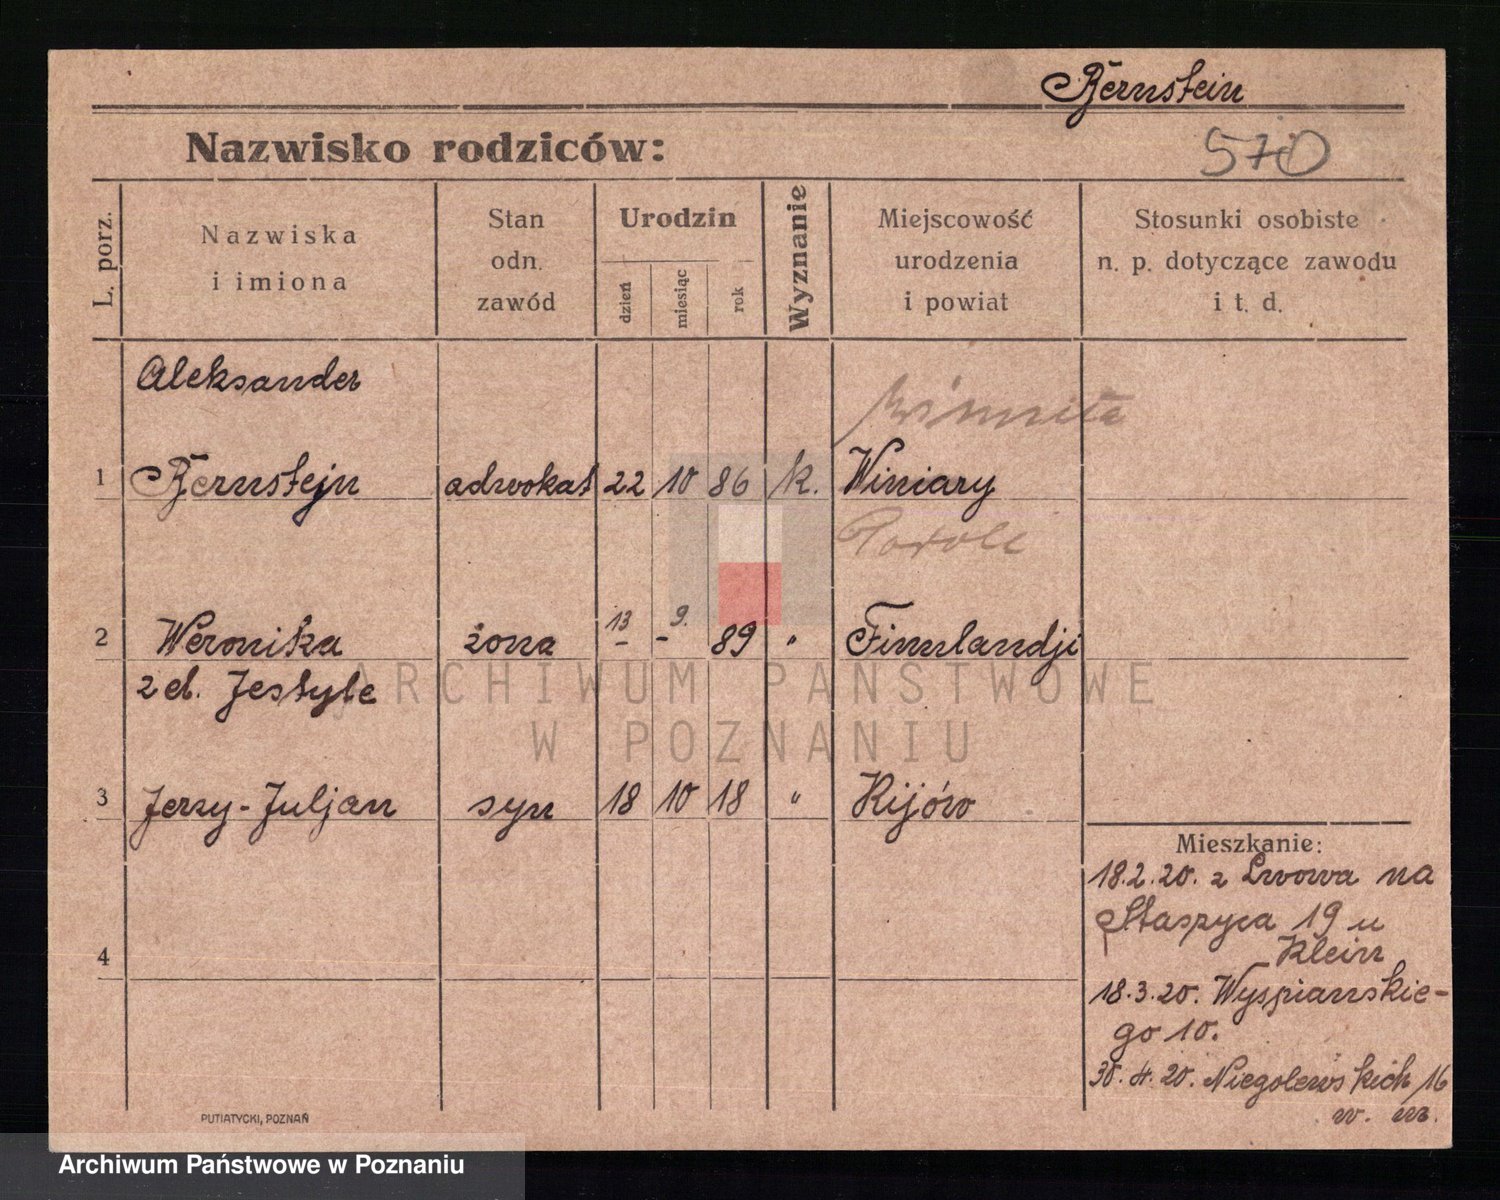 Bernstein
Nazwisko rodziców:
570
L. porz.
Nazwiska
i imiona
Stan
odn.
zawód
Urodzin
dzień
miesiąc
rok
Wyznanie
Miejscowość
urodzenia
i powiat
Stosunki osobiste
n. p. dotyczące zawodu
i t. d.
Aleksander
1 Bernstejn adwokat 22 10 86 k. Winiary
13 9.
2 Weronika żona - - 89 " Finnlandji
z d.
3 Jerzy-Juljan syn 18 10 18 " Kijów
Mieszkanie:
18.2.20. z Lwowa na
Staszyca 19 u
Klein
4
18.3.20. Wyspianskie-
go 10.
30.4.20. Niegolewskich 16
w. m.
PUTIATYCKI, POZNAŃ
ARCHIWUM PAŃSTWOWE
W POZNANIU
Archiwum Państwowe w Poznaniu